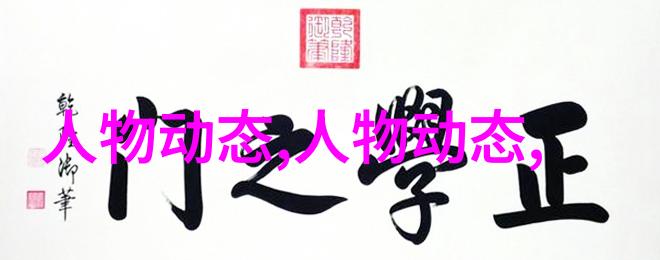 乾隆御筆
正學之門
乾隆御筆
人物动态,人物动态,